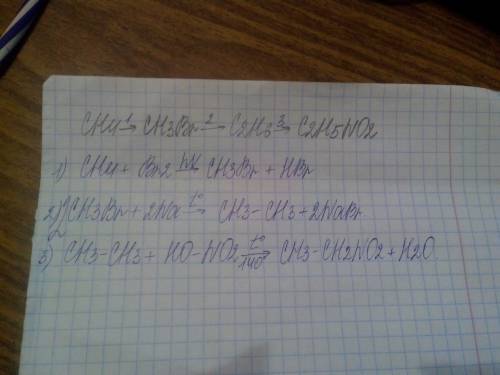 CH4 1→ CH3Br 2→ C2H6 3→ C2H5NO2
1) CH4 + Br2 hν→ CH3Br + HBr
2) 2CH3Br + 2Na t°→ CH3-CH3 + 2NaBr
3) CH3-CH3 + HO-NO2 t° 140°→ CH3-CH2NO2 + H2O